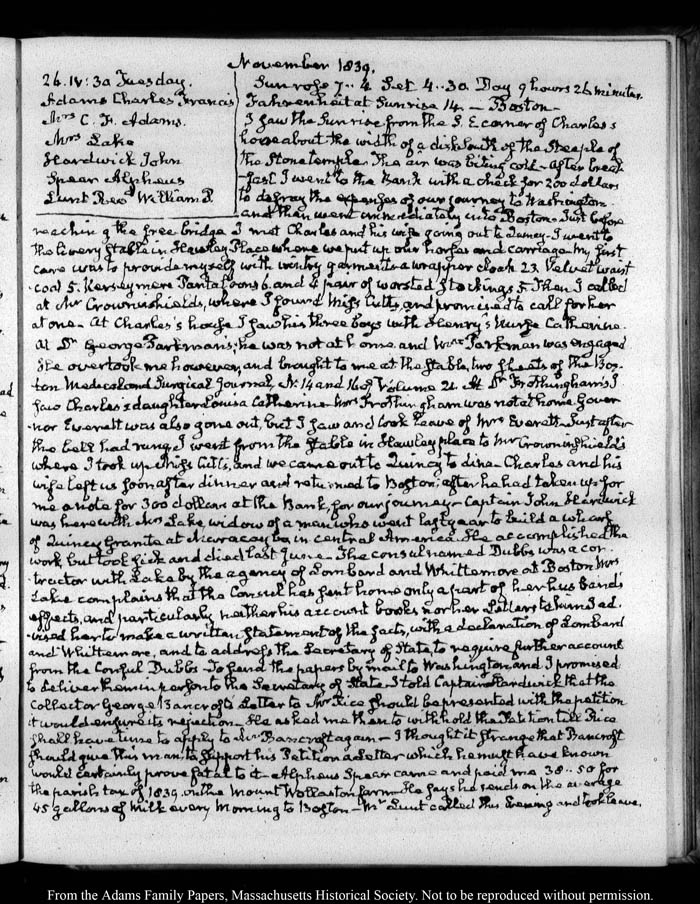 November 1839.
26. IV: 30 Tuesday.
Adams Charles Francis
Mrs C. F. Adams.
Mrs Lake
Hardwick John
Spear Alpheus
Lunt Revd William P.
Sun rose 7..4 Set 4..30. Day 9 hours 26 minutes.
Fahrenheit at Sunrise 14 — Boston —
I saw the Sun rise from the S.E. corner of Charles's
house about the width of a disk South of the Steeple of
the Stone temple. The air was biting cold — after break
-fast I went to the Bank with a check for 200 dollars
to defray the expenses of our journey to Washington
and then went immediately into Boston — Just before
reaching the free bridge I met Charles and his wife going out to Quincy — I went to
the livery Stable in Hawley Place where we put up our horses and carriage — My first
care was to provide myself with wintry garments a wrapper cloak 23. Velvet waist
-coat 5. Kerseymere Pantaloons 6. and 4 pair of worsted Stockings 5. Then I called
at Mr Crowninshields, where I found Miss Cutts, and promised to call for her
at one — At Charles's house I saw his three boys with Henry's Nurse Catherine.
At Dr George Parkman's; he was not at home, and Mrs Parkman was engaged
He overtook me however, and brought to me at the Stable, two sheets of the Bos-
ton Medical and Surgical Journal, N. 14 and 16 of Volume 21. At Dr Frothingham's I
saw Charles's daughter Louisa Catherine — Mrs Frothingham was not at home. Gover
-nor Everett was also gone out, but I saw and took leave of Mrs Everett — Just after
the bell had rung I went from the Stable in Hawley place to Mr Crowninshield's
where I took up Miss Cutts, and we came out to Quincy to dine — Charles and his
wife left us soon after dinner and returned to Boston; after he had taken up for
me a note for 300 dollars at the Bank, for our journey — Captain John Hardwick
was here with Mrs Lake, widow of a man who went last year to build a wharf
of Quincy Granite at Maracaybo in central America. He accomplished the
work but took sick and died last June — The consul named Dubbs was a con
tractor with Lake by the agency of Lombard and Whittemore at Boston Mrs
Lake complains that the Consul has sent home only a part of her husband's
effects, and particularly neither his account books nor her Letters to him I ad-
-vised her to make a written Statement of the facts, with a declaration of Lombard
and Whittemore, and to address the Secretary of State, to require further account
from the Consul Dubbs — To send the papers by mail to Washington and I promised
to deliver them in person to the Secretary of State I told Captain Hardwick that the
Collector George Bancroft's Letter to Mr Rice should be presented with the petition
it would ensure its rejection — He asked me then to withhold the Petition till Rice
shall have time to apply to Mr Bancroft again — I thought it strange that Bancroft
should give this man, to support his Petition a Letter which he must have known
would certainly prove fatal to it — Alpheus Spear came and paid me 38..50 for
the parish tax of 1839 on the Mount Wollaston farm — He says he sends on the average
45 gallons of Milk every Morning to Boston — Mr Lunt called this Evening and took leave.
From the Adams Family Papers, Massachusetts Historical Society. Not to be reproduced without permission.